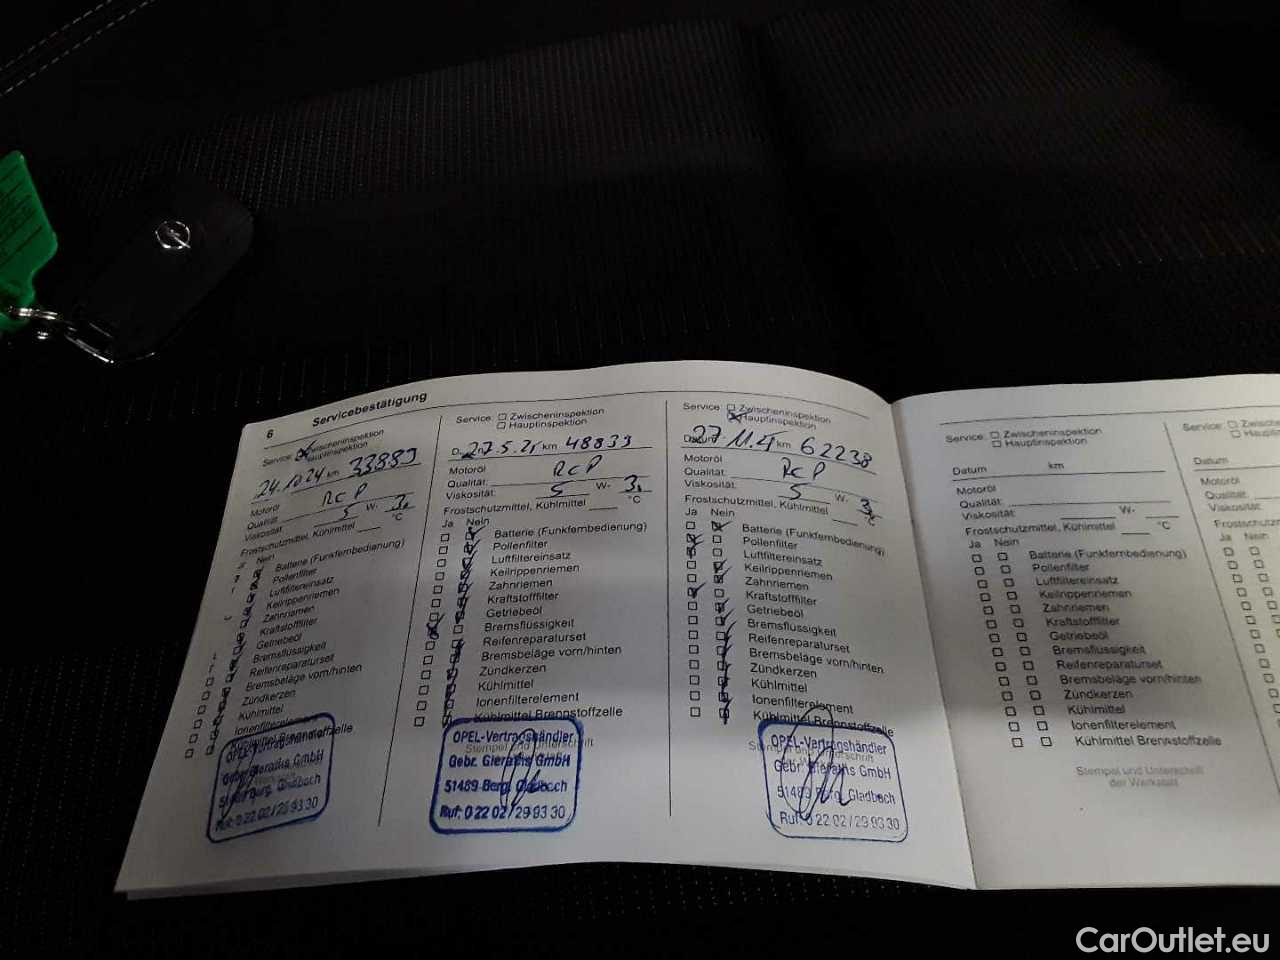 6 Servicebestätigung
Service: Zwischeninspektion
Hauptinspektion
24.10.24 km 33889
Motoröl RcP
Qualität:
Viskosität: 5 W-
Frostschutzmittel, Kühlmittel °C
Nein
Batterie (Funkfernbedienung)
Pollenfilter
Luftfiltereinsatz
Keilrippenriemen
Zahnriemen
Kraftstofffilter
Getriebeöl
Bremsflüssigkeit
Reifenreparaturset
Bremsbeläge vorn/hinten
Zündkerzen
Kühlmittel
Ionenfilterelement
Kühlmittel Brennstoffzelle
OPEL-Vertragshändler
Gebr. Gieraths GmbH
51489 Berg. Gladbach
Ruf: 0 22 02 / 29 93 30
Service: Zwischeninspektion
Hauptinspektion
27.5.25 km 48839
Motoröl RcP
Qualität:
Viskosität: 5 W-
Frostschutzmittel, Kühlmittel °C
Ja Nein
Batterie (Funkfernbedienung)
Pollenfilter
Luftfiltereinsatz
Keilrippenriemen
Zahnriemen
Kraftstofffilter
Getriebeöl
Bremsflüssigkeit
Reifenreparaturset
Bremsbeläge vorn/hinten
Zündkerzen
Kühlmittel
Ionenfilterelement
Kühlmittel Brennstoffzelle
Stempel und Unterschrift
OPEL-Vertragshändler
Gebr. Gieraths GmbH
51489 Berg. Gladbach
Ruf: 0 22 02 / 29 93 30
Service: Zwischeninspektion
Hauptinspektion
Datum km 62238
Motoröl RcP
Qualität:
Viskosität: 5 W-
Frostschutzmittel, Kühlmittel °C
Ja Nein
Batterie (Funkfernbedienung)
Pollenfilter
Luftfiltereinsatz
Keilrippenriemen
Zahnriemen
Kraftstofffilter
Getriebeöl
Bremsflüssigkeit
Reifenreparaturset
Bremsbeläge vorn/hinten
Zündkerzen
Kühlmittel
Ionenfilterelement
Kühlmittel Brennstoffzelle
Stempel und Unterschrift
OPEL-Vertragshändler
Gebr. Gieraths GmbH
51489 Berg. Gladbach
Ruf: 0 22 02 / 29 93 30
Service: Zwischeninspektion
Hauptinspektion
Datum km
Motoröl
Qualität:
Viskosität: W-
Frostschutzmittel, Kühlmittel °C
Ja Nein
Batterie (Funkfernbedienung)
Pollenfilter
Luftfiltereinsatz
Keilrippenriemen
Zahnriemen
Kraftstofffilter
Getriebeöl
Bremsflüssigkeit
Reifenreparaturset
Bremsbeläge vorn/hinten
Zündkerzen
Kühlmittel
Ionenfilterelement
Kühlmittel Brennstoffzelle
Stempel und Unterschrift
der Werkstatt
Service:
Datum
Motoröl
Qualität:
Viskosität:
Ja Nein
CarOutlet.eu